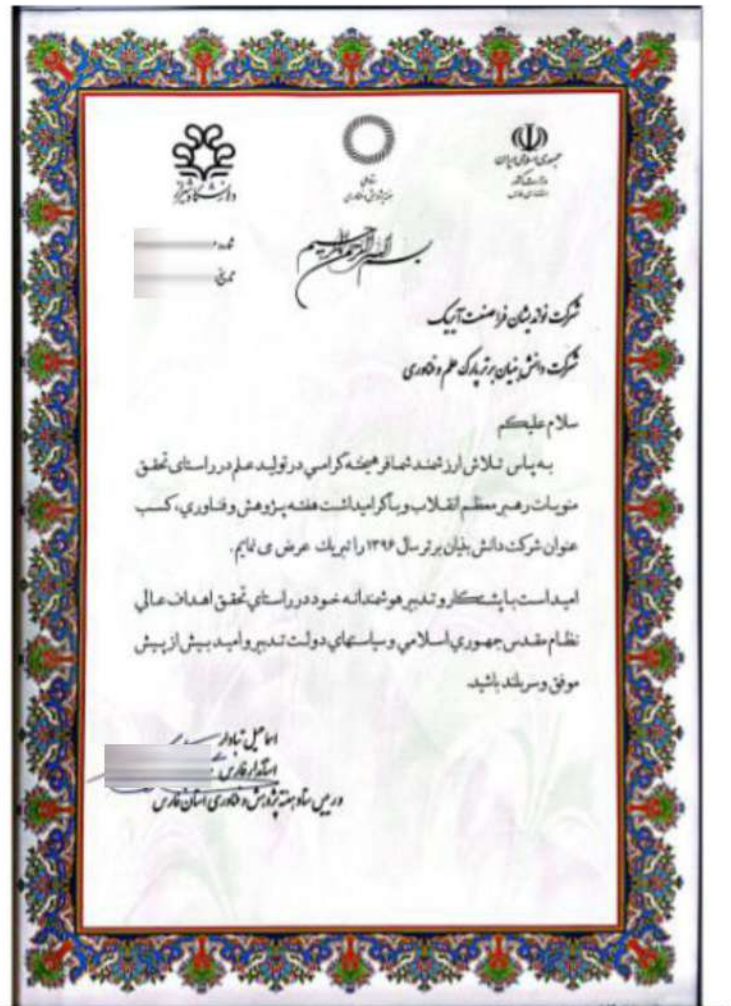 جمهوری اسلامی ایران
وزارت کشور
استانداری فارس
هفته پژوهش و فناوری
دانشگاه شیراز
بسم الله الرحمن الرحیم
شماره
تاریخ
شرکت نواندیشان فرا صنعت آیبک
شرکت دانش بنیان برتر پارک علم و فناوری
سلام علیکم
به پاس تلاش ارزشمند شما فرهیخته گرامي در تولید علم در راستای تحقق
منویات رهبر معظم انقلاب و با گرامیداشت هفته پژوهش و فناوري، کسب
عنوان شرکت دانش بنیان برتر سال ۱۳۹۶ را تبریك عرض می نمایم.
امید است با پشتکار و تدبیر هوشمندانه خود در راستاي تحقق اهداف عالي
نظام مقدس جمهوري اسلامي و سیاستهاي دولت تدبیر و امید بیش از پیش
موفق و سربلند باشید.
اسماعیل تبادار
استاندار فارس
و رییس ستاد هفته پژوهش و فناوری استان فارس